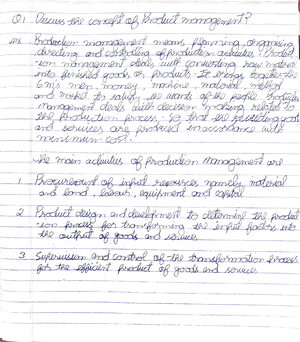 Q1 Discuss the concept of Product management?
Ans Production management means planning, organising
directing and controlling of production activities. Product
-ion management deals with converting raw material
into finished goods or products. It brings together the
6 m's men, money, machine, material, method
and market to satisfy the wants of the people. Production
management deals with decision making related to
the production process. So that the resulting goods
and services are produced in accordance with
minimum cost.
The main activities of production management are
1 Procurement of input resources namely, material
and land, labour, equipment and capital
2 Product design and development to determine the product
-ion process for transforming the input factors into
the output of goods and services
3 Supervision and control of the transformation process
for the efficient product of goods and services